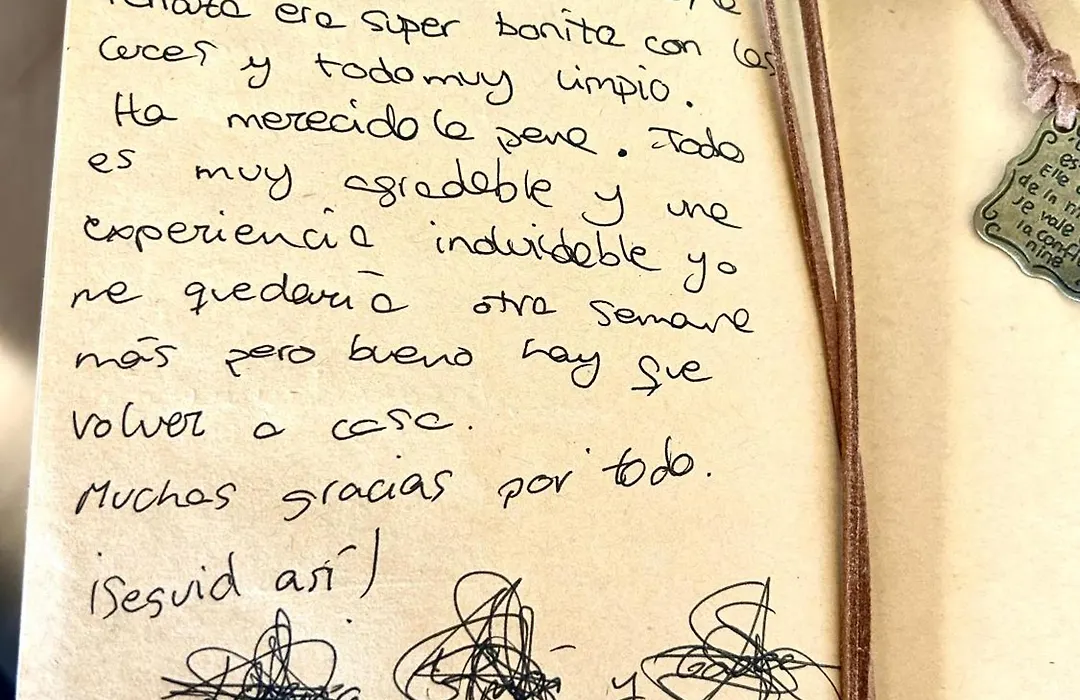 era super bonita con las
luces y todo muy limpio.
Ha merecido la pena. Todo
es muy agradable y una
experiencia induidable yo
me quedaría otra semana
más pero bueno hay que
volver a casa.
Muchas gracias por todo.
¡Seguid así!
y
es
Elle
de la
je vale
la confi
nine